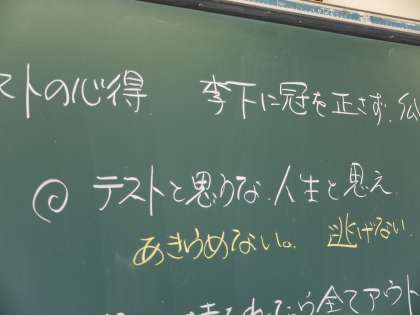 ストの心得　李下に冠を正さず、公
◎ テストと思うな、人生と思え
あきらめない。　逃げない
全てアウト